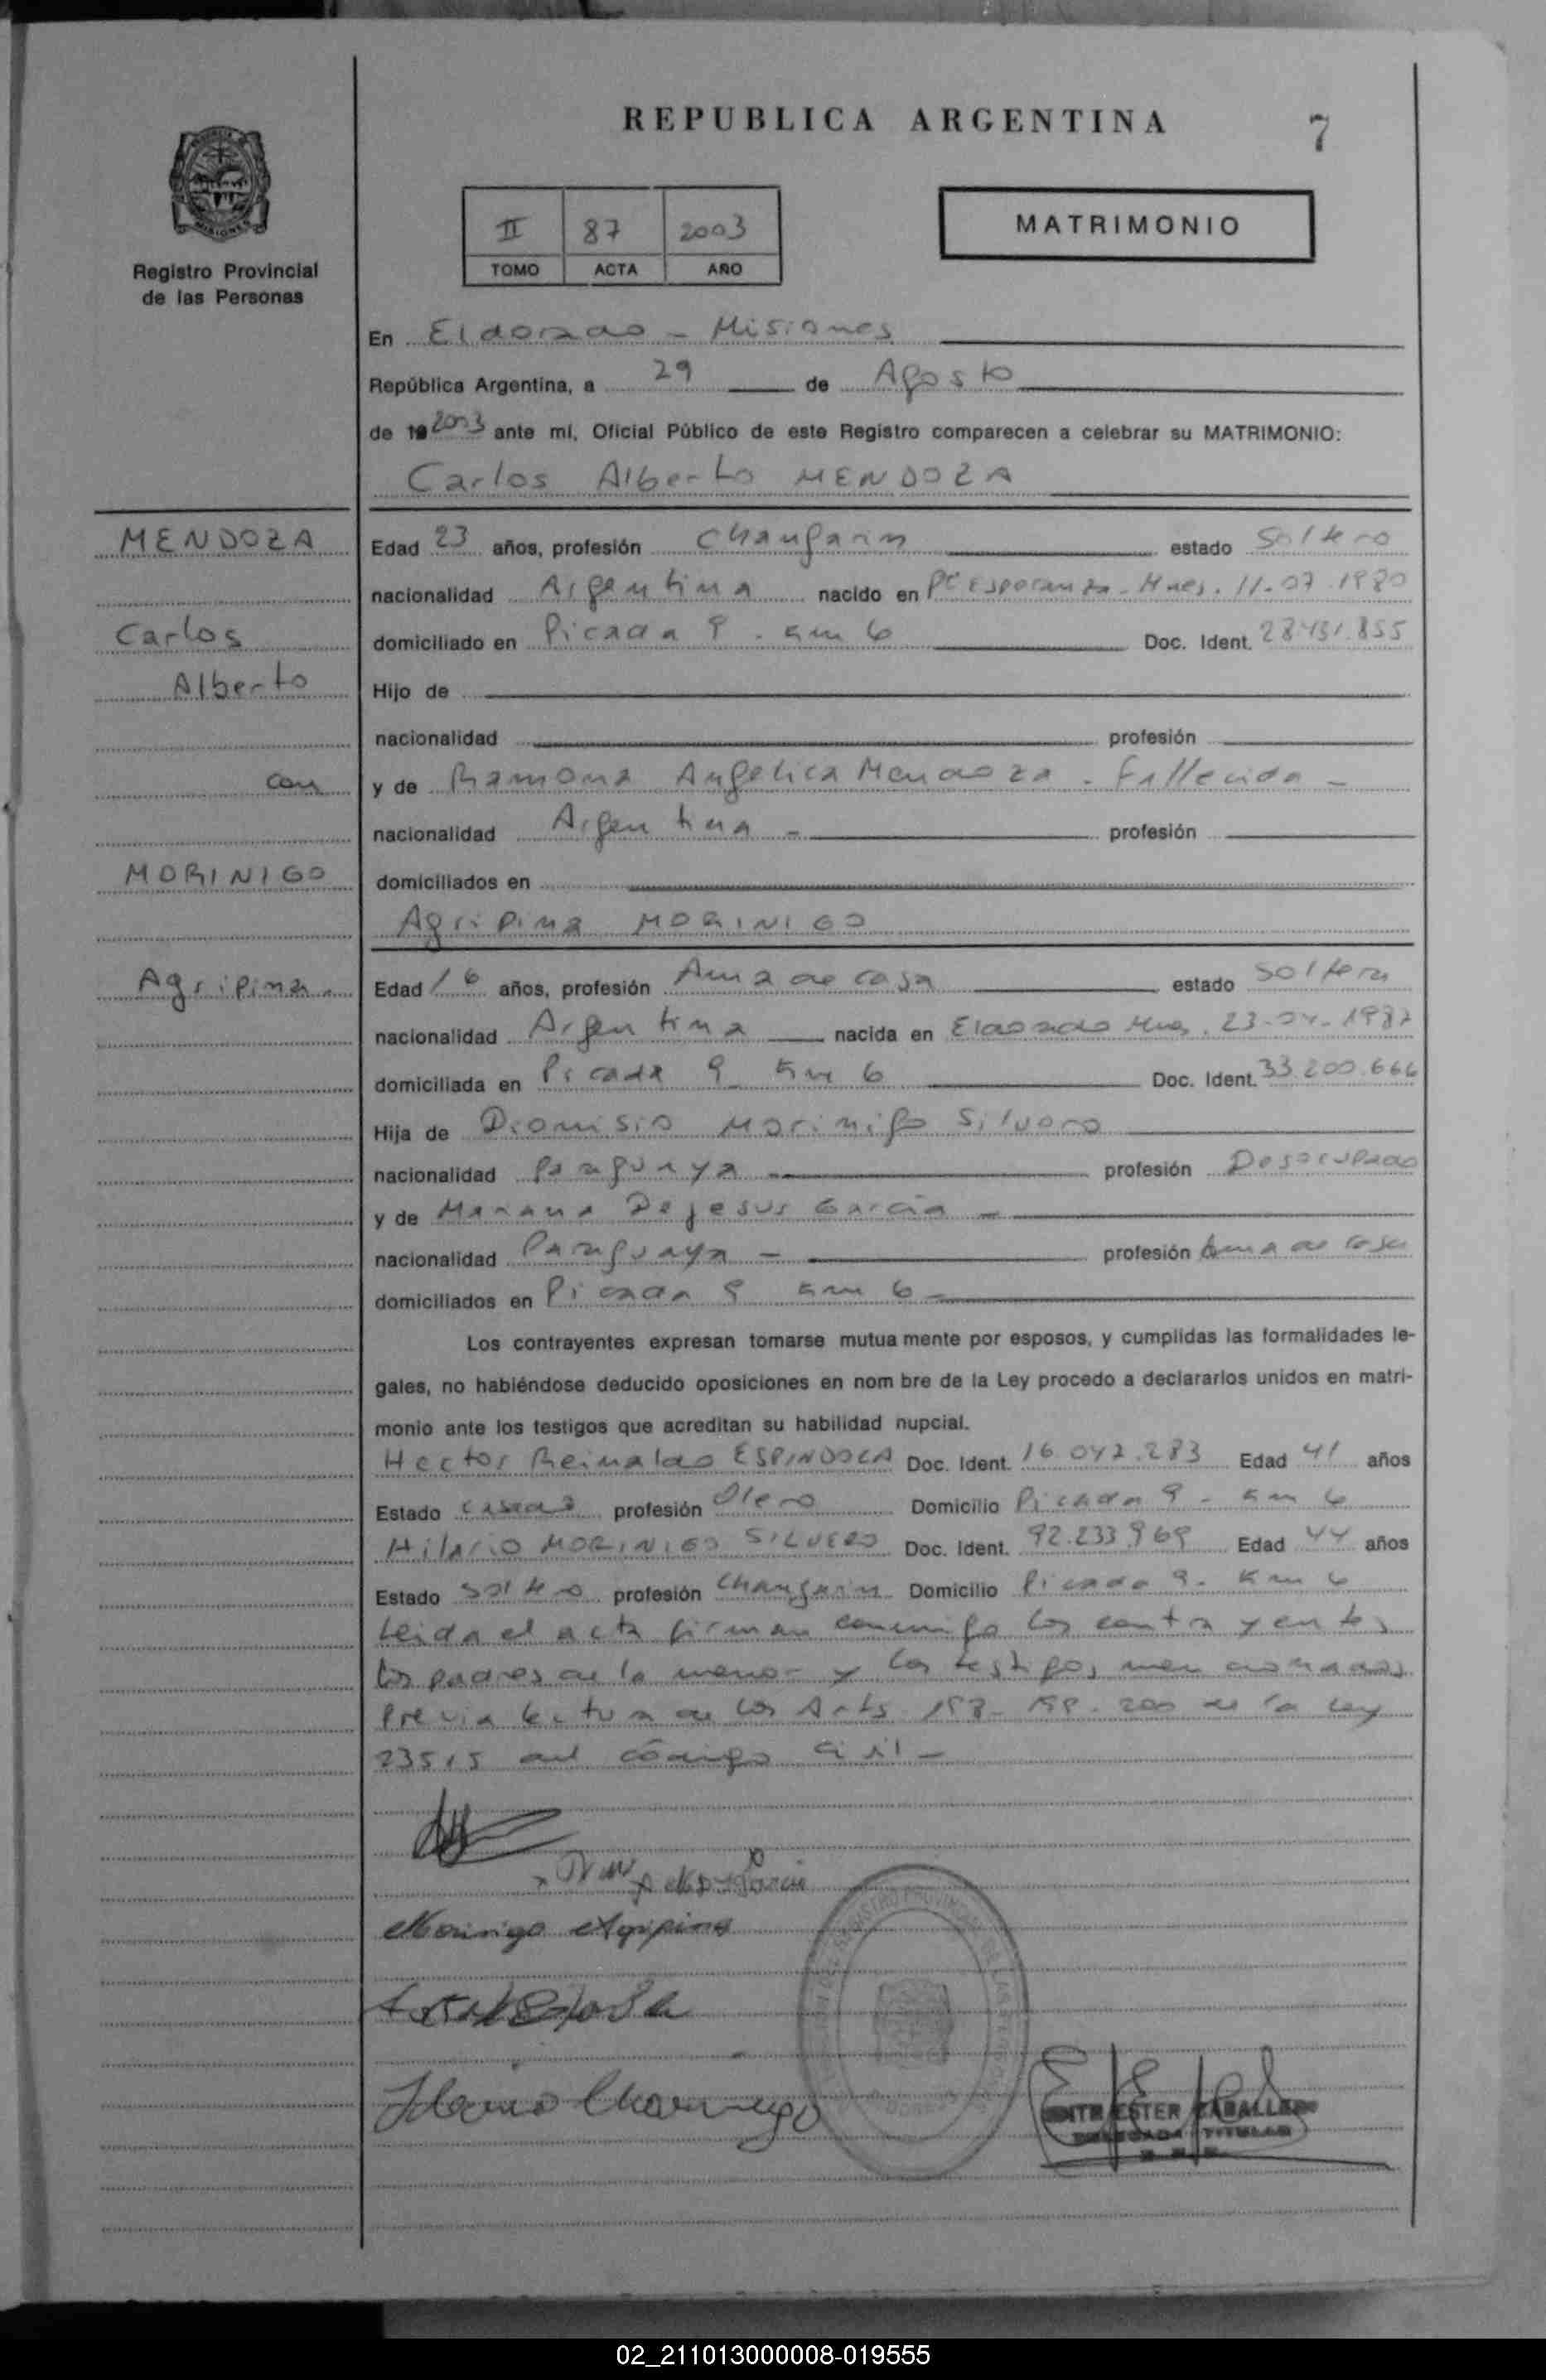 REPUBLICA ARGENTINA
7
II 87 2003
TOMO ACTA AÑO
MATRIMONIO
Registro Provincial
de las Personas
En Eldorado - Misiones
República Argentina, a 29 de Agosto
de 19 2003 ante mí, Oficial Público de este Registro comparecen a celebrar su MATRIMONIO:
Carlos Alberto MENDOZA
MENDOZA
Carlos
Alberto
con
MORINIGO
Agripina
Edad 23 años, profesión Changarin estado Soltero
nacionalidad Argentina nacido en Pto Esperanza - Mnes. 11-07-1980
domiciliado en Picada 9 . Km 6 Doc. Ident. 28.431.855
Hijo de
nacionalidad profesión
y de Ramona Angelica Mendoza - Fallecida -
nacionalidad Argentina - profesión
domiciliados en
Agripina MORINIGO
Edad 16 años, profesión Ama de casa estado Soltera
nacionalidad Argentina nacida en Eldorado Mnes. 23-04-1987
domiciliada en Picada 9 Km 6 Doc. Ident. 33.200.666
Hija de Dionisio Morinigo Silvero
nacionalidad Paraguaya profesión Desocupado
y de Mariana Dejesus Garcia -
nacionalidad Paraguaya - profesión Ama de casa
domiciliados en Picada 9 Km 6 -
Los contrayentes expresan tomarse mutua mente por esposos, y cumplidas las formalidades le-
gales, no habiéndose deducido oposiciones en nom bre de la Ley procedo a declararlos unidos en matri-
monio ante los testigos que acreditan su habilidad nupcial.
Hector Reinaldo ESPINDOLA Doc. Ident. 16.047.283 Edad 41 años
Estado casado profesión Olero Domicilio Picada 9 - Km 6
Hilario MORINIGO SILVERO Doc. Ident. 92.233.969 Edad 44 años
Estado Soltero profesión Changarin Domicilio Picada 9 - Km 6
Leida el acta firman conmigo los contrayentes
los padres de la menor y los testigos mencionados
Previa lectura de los Arts 198 - 199 - 200 de la Ley
23515 del código civil -
Morinigo Agripina
Hilario Morinigo
ESTER CABALLERO
DELEGADA TITULAR
02_211013000008-019555